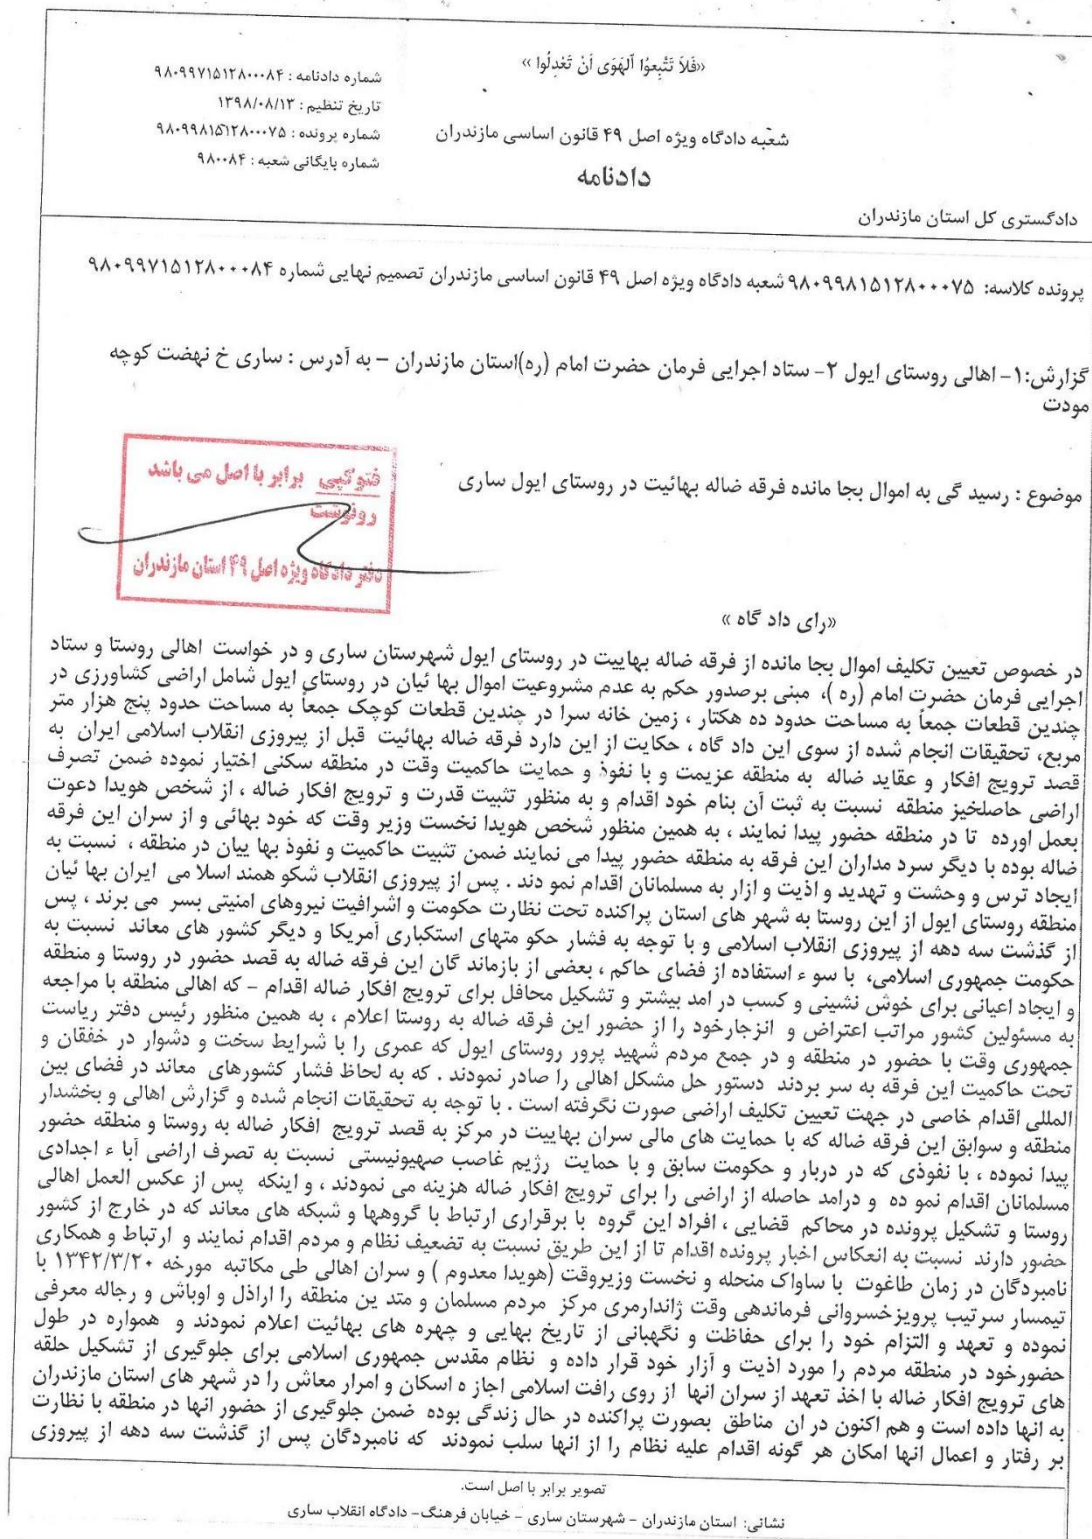 «فَلاَ تَتَّبِعوُا اَلهَوَى اَنْ تَعْدِلُوا »
شماره دادنامه : ۹۸۰۹۹۷۱۵۱۲۸۰۰۰۸۴
تاریخ تنظیم : ۱۳۹۸/۰۸/۱۳
شماره پرونده : ۹۸۰۹۹۸۱۵۱۲۸۰۰۰۷۵
شماره بایگانی شعبه : ۹۸۰۰۸۴
شعبه دادگاه ویژه اصل ۴۹ قانون اساسی مازندران
دادنامه
دادگستری کل استان مازندران
پرونده کلاسه: ۹۸۰۹۹۸۱۵۱۲۸۰۰۰۷۵ شعبه دادگاه ویژه اصل ۴۹ قانون اساسی مازندران تصمیم نهایی شماره ۹۸۰۹۹۷۱۵۱۲۸۰۰۰۸۴
گزارش:۱- اهالی روستای ایول ۲- ستاد اجرایی فرمان حضرت امام (ره)استان مازندران – به آدرس : ساری خ نهضت کوچه
مودت
موضوع : رسید گی به اموال بجا مانده فرقه ضاله بهائیت در روستای ایول ساری
فتوکپی برابر با اصل می باشد
رونوشت
دفتر دادگاه ویژه اصل ۴۹ استان مازندران
«رای داد گاه »
در خصوص تعیین تکلیف اموال بجا مانده از فرقه ضاله بهاییت در روستای ایول شهرستان ساری و در خواست اهالی روستا و ستاد
اجرایی فرمان حضرت امام (ره )، مبنی برصدور حکم به عدم مشروعیت اموال بها ئیان در روستای ایول شامل اراضی کشاورزی در
چندین قطعات جمعاً به مساحت حدود ده هکتار ، زمین خانه سرا در چندین قطعات کوچک جمعاً به مساحت حدود پنج هزار متر
مربع، تحقیقات انجام شده از سوی این داد گاه ، حکایت از این دارد فرقه ضاله بهائیت قبل از پیروزی انقلاب اسلامی ایران به
قصد ترویج افکار و عقاید ضاله به منطقه عزیمت و با نفوذ و حمایت حاکمیت وقت در منطقه سکنی اختیار نموده ضمن تصرف
اراضی حاصلخیز منطقه نسبت به ثبت آن بنام خود اقدام و به منظور تثبیت قدرت و ترویج افکار ضاله ، از شخص هویدا دعوت
بعمل اورده تا در منطقه حضور پیدا نمایند ، به همین منظور شخص هویدا نخست وزیر وقت که خود بهائی و از سران این فرقه
ضاله بوده با دیگر سرد مداران این فرقه به منطقه حضور پیدا می نمایند ضمن تثبیت حاکمیت و نفوذ بها ییان در منطقه ، نسبت به
ایجاد ترس و وحشت و تهدید و اذیت و ازار به مسلمانان اقدام نمو دند . پس از پیروزی انقلاب شکو همند اسلا می ایران بها ئیان
منطقه روستای ایول از این روستا به شهر های استان پراکنده تحت نظارت حکومت و اشرافیت نیروهای امنیتی بسر می برند ، پس
از گذشت سه دهه از پیروزی انقلاب اسلامی و با توجه به فشار حکو متهای استکباری آمریکا و دیگر کشور های معاند نسبت به
حکومت جمهوری اسلامی، با سو ء استفاده از فضای حاکم ، بعضی از بازماند گان این فرقه ضاله به قصد حضور در روستا و منطقه
و ایجاد اعیانی برای خوش نشینی و کسب در امد بیشتر و تشکیل محافل برای ترویج افکار ضاله اقدام – که اهالی منطقه با مراجعه
به مسئولین کشور مراتب اعتراض و انزجارخود را از حضور این فرقه ضاله به روستا اعلام ، به همین منظور رئیس دفتر ریاست
جمهوری وقت با حضور در منطقه و در جمع مردم شهید پرور روستای ایول که عمری را با شرایط سخت و دشوار در خفقان و
تحت حاکمیت این فرقه به سر بردند دستور حل مشکل اهالی را صادر نمودند . که به لحاظ فشار کشورهای معاند در فضای بین
المللی اقدام خاصی در جهت تعیین تکلیف اراضی صورت نگرفته است . با توجه به تحقیقات انجام شده و گزارش اهالی و بخشدار
منطقه و سوابق این فرقه ضاله که با حمایت های مالی سران بهاییت در مرکز به قصد ترویج افکار ضاله به روستا و منطقه حضور
پیدا نموده ، با نفوذی که در دربار و حکومت سابق و با حمایت رژیم غاصب صهیونیستی نسبت به تصرف اراضی آبا ء اجدادی
مسلمانان اقدام نمو ده و درامد حاصله از اراضی را برای ترویج افکار ضاله هزینه می نمودند ، و اینکه پس از عکس العمل اهالی
روستا و تشکیل پرونده در محاکم قضایی ، افراد این گروه با برقراری ارتباط با گروهها و شبکه های معاند که در خارج از کشور
حضور دارند نسبت به انعکاس اخبار پرونده اقدام تا از این طریق نسبت به تضعیف نظام و مردم اقدام نمایند و ارتباط و همکاری
نامبردگان در زمان طاغوت با ساواک منحله و نخست وزیروقت (هویدا معدوم ) و سران اهالی طی مکاتبه مورخه ۱۳۴۲/۳/۲۰ با
تیمسار سرتیپ پرویزخسروانی فرماندهی وقت ژاندارمری مرکز مردم مسلمان و متد ین منطقه را اراذل و اوباش و رجاله معرفی
نموده و تعهد و التزام خود را برای حفاظت و نگهبانی از تاریخ بهایی و چهره های بهائیت اعلام نمودند و همواره در طول
حضورخود در منطقه مردم را مورد اذیت و آزار خود قرار داده و نظام مقدس جمهوری اسلامی برای جلوگیری از تشکیل حلقه
های ترویج افکار ضاله با اخذ تعهد از سران انها از روی رافت اسلامی اجاز ه اسکان و امرار معاش را در شهر های استان مازندران
به انها داده است و هم اکنون در ان مناطق بصورت پراکنده در حال زندگی بوده ضمن جلوگیری از حضور انها در منطقه با نظارت
بر رفتار و اعمال انها امکان هر گونه اقدام علیه نظام را از انها سلب نمودند که نامبردگان پس از گذشت سه دهه از پیروزی
تصویر برابر با اصل است.
نشانی: استان مازندران - شهرستان ساری - خیابان فرهنگ- دادگاه انقلاب ساری